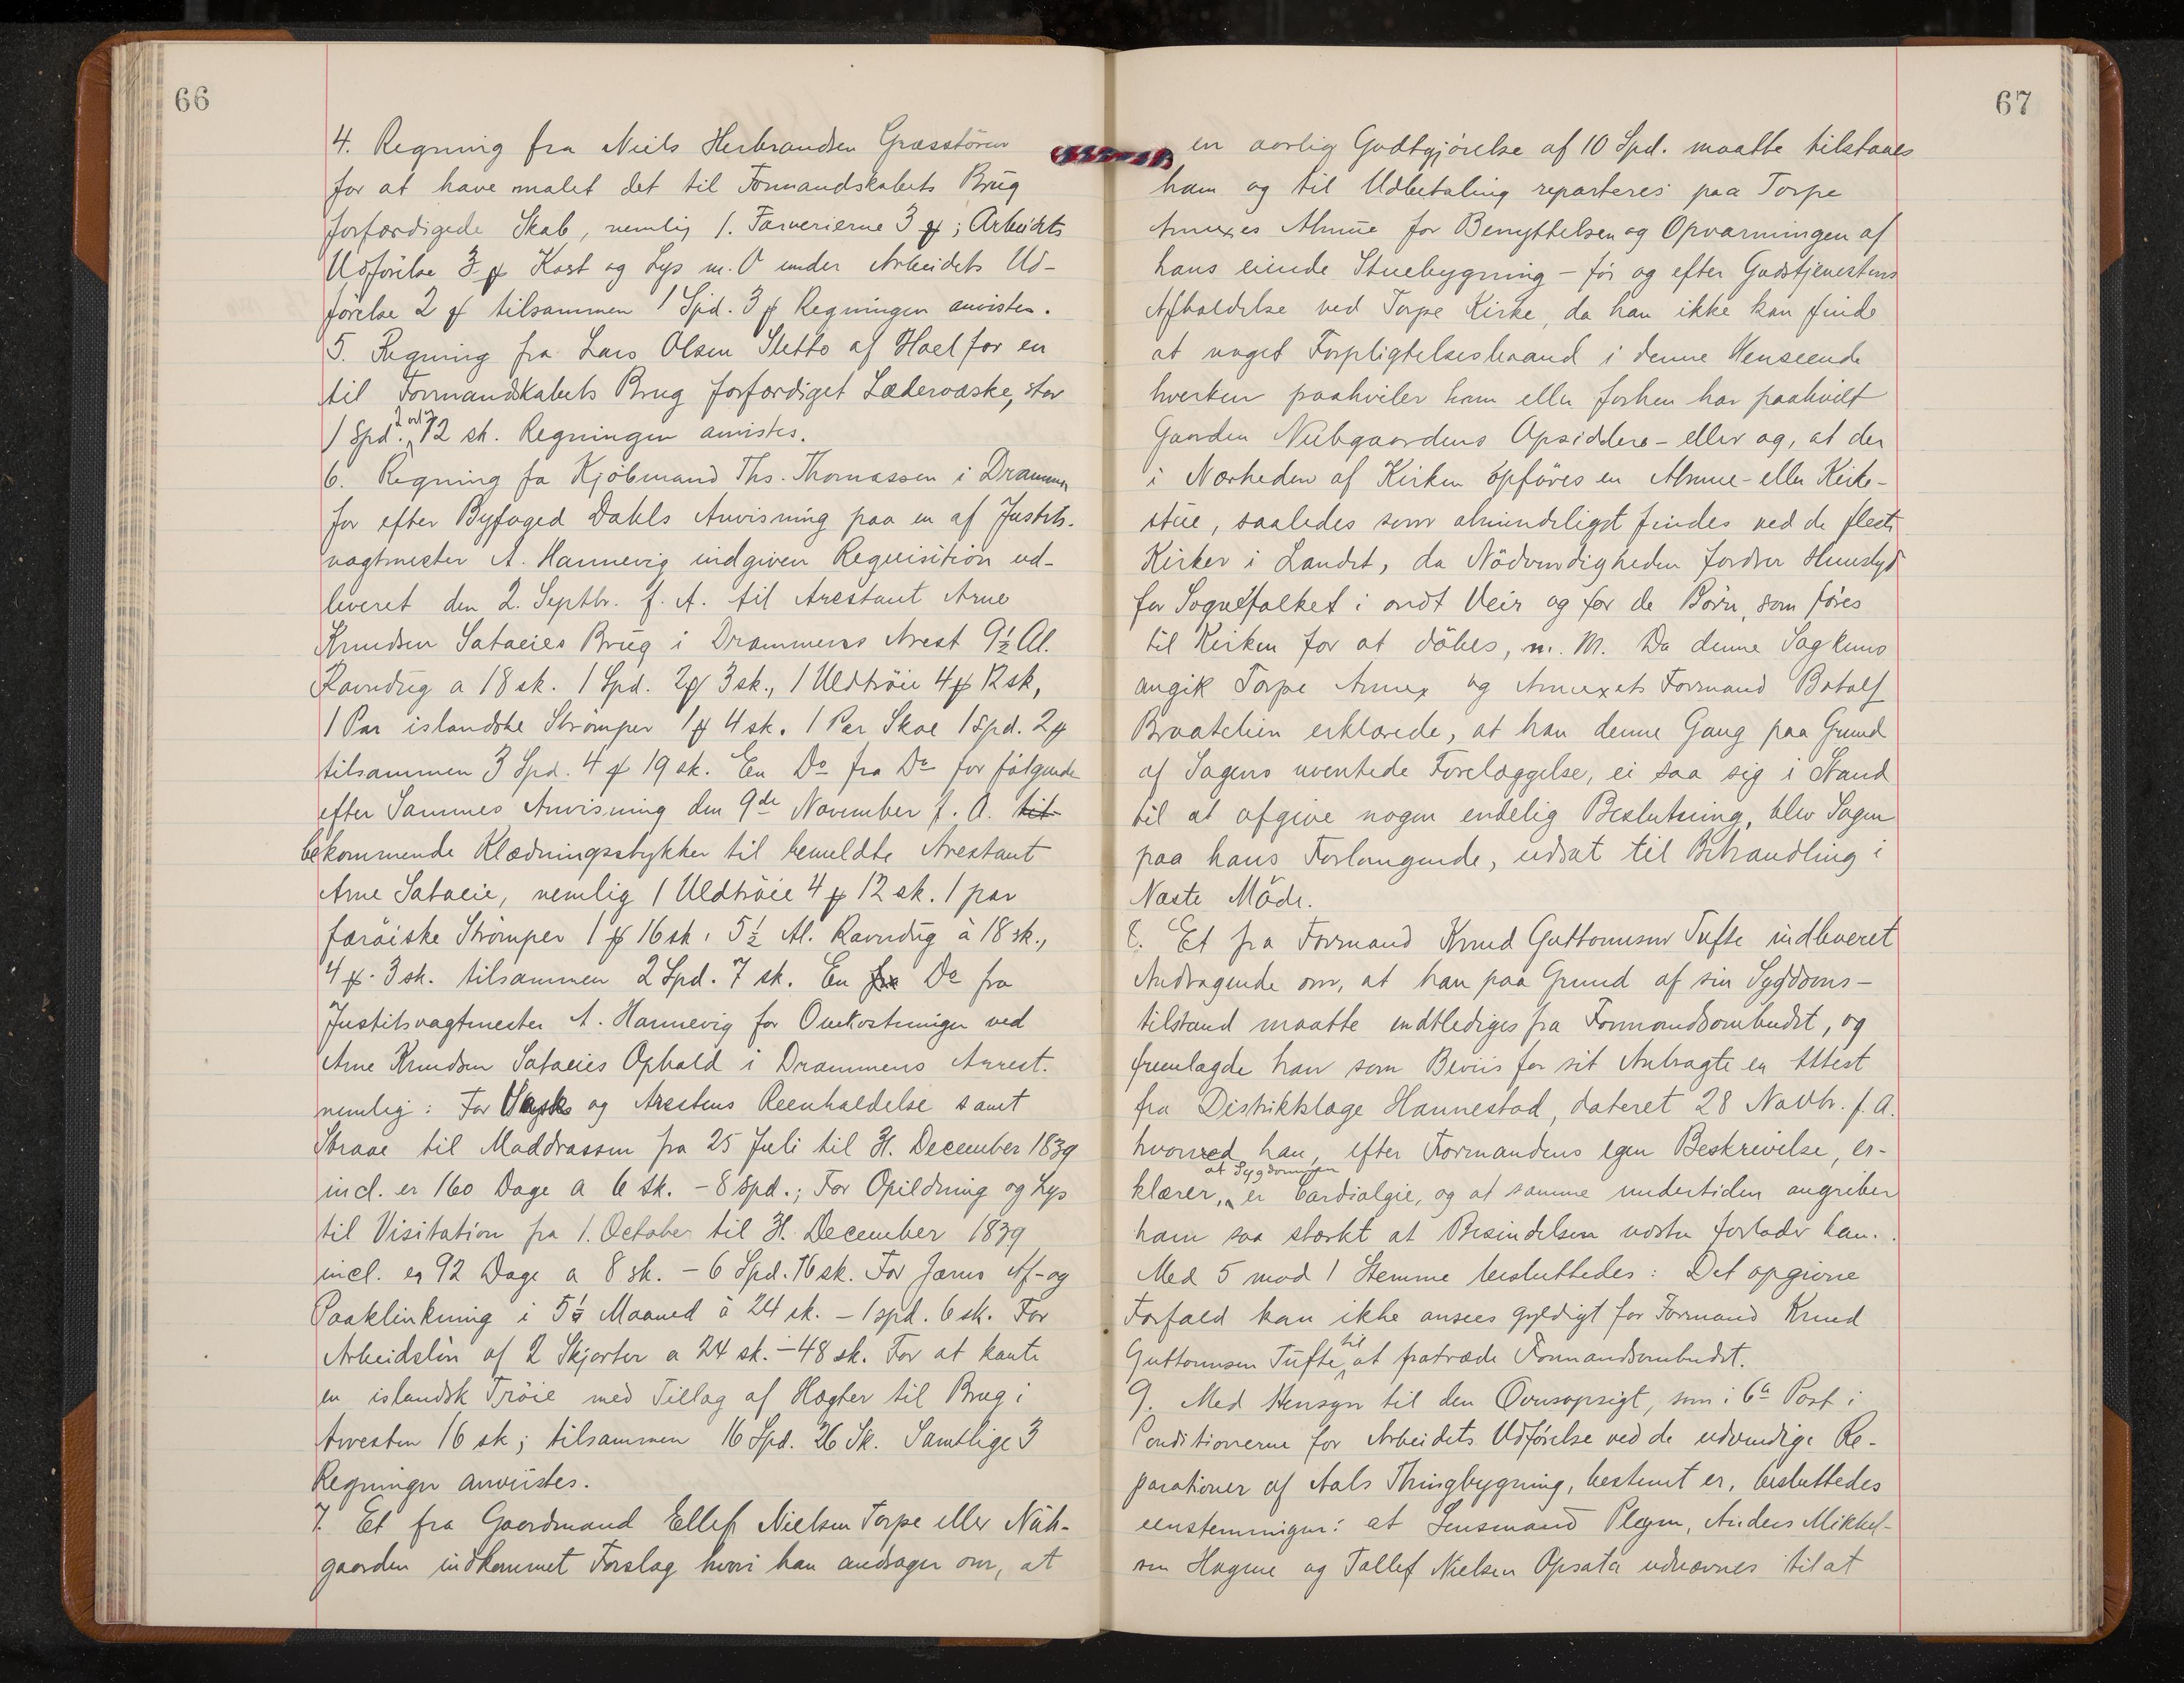 66
4. Regning fra Niels Herbrandsen Græsstören
for at have malet det til Formandskabets Brug
forfærdigede Skab, nemlig 1. Farverierne 3 ₰; Arbeidets
Udförelse 3 ₰ Kost og Lys m. V under Arbeidets Ud-
förelse 2 ₰ tilsammen 1 Spd. 3 ₰ Regningen anvistes.
5. Regning fra Lars Olsen Sletto af Hoel for en
til Formandskabets Brug forfærdiget Lædervæske, stor
1 Spd. 2 ort 12 sk. Regningen anvistes.
6. Regning fa Kjöbmand Ths. Thomassen i Drammen
for efter Byfoged Dahls Anvisning paa en af Justits-
vagtmester A. Hannevig indgiven Requisition ud-
leveret den 2. Septbr. f. A. til Arestant Arne
Knudsen Sataeies Brug i Drammens Arest 9½ Al.
Ravndug a 18 sk. 1 Spd. 2 ₰ 3 sk., 1 Uldtröie 4 ₰ 12 sk,
1 Par islandske Strömper 1 ₰ 4 sk. 1 Par Skoe 1 spd. 2 ₰
tilsammen 3 Spd. 4 ₰ 19 sk. En Do fra Do for fölgende
efter Sammes Anvisning den 9de November f. A. til
bekommende Klædningsstykker til bemeldte Arestant
Arne Sataeie, nemlig 1 Uldtröie 4 ₰ 12 sk. 1 par
færöiske Strömper 1 ₰ 16 sk. 5½ Al. Ravndug à 18 sk.,
4 ₰. 3 sk. tilsammen 2 Spd. 7 sk. En fra Do fra
Justitsvagtmester A. Hannevig for Omkostninger ved
Arne Knudsen Sataeies Ophold i Drammens Arrest.
nemlig: For Vask og Arestens Reenholdelse samt
Straae til Maddrassen fra 25 Juli til 31. December 1839
incl. er 160 Dage a 6 sk. - 8 spd.; For Opildning og Lys
til Visitation fra 1. October til 31. December 1839
incl. er 92 Dage a 8 sk. - 6 Spd. 16 sk. For Jerns Af- og
Paaklinkning i 5¼ Maaned à 24 sk. - 1 spd. 6 sk. For
Arbeidslön af 2 Skjorter a 24 sk. - 48 sk. For at kante
en islandsk Tröie med Tillæg af Hægter til Brug i
Arresten 16 sk; tilsammen 16 Spd. 26 Sk. Samtlige 3
Regninger anviistes.
7. Et fra Gaardmand Ellef Nielsen Torpe eller Nüb-
gaarden indkommet Forslag hvori han andrager om, at
67
en aarlig Godtgjörelse af 10 Spd. maatte tilstaaes
ham og til Udbetaling reparteres paa Torpe
Annexes Almue for Benyttelsen og Opvarmningen af
hans eiende Stuebygning - för og efter Gudstjenestens
Afholdelse ved Torpe Kirke, da han ikke kan finde
at noget Forpligtelsesbaand i denne Henseende
hverken paahviler ham eller forhen har paahvilt
Gaarden Nubgaardens Opsiddere - eller og, at der
i Nærheden af Kirken opföres en Almue- eller Kirke-
stue, saaledes som almindeligst findes ved de fleste
Kirker i Landet, da Nödvendigheden fordrer Huuslyd
for Sognefolket i ondt Veir og for de Börn, som föres
til Kirken for at döbes, m. M. Da denne Sag kuns
angik Torpe Annex og Annexets Formand Botolf
Braatelien erklærede, at han denne Gang paa Grund
af Sagens uventede Forelæggelse, ei saa sig i Stand
til at afgive nogen endelig Beslutning, blev Sagen
paa hans Forlangende, udsat til Behandling i
Næste Möde.
8. Et fra Formand Knud Guttormsen Tufte indleveret
Andragende om, at han paa Grund af sin Sygdoms-
tilstand maatte endtlediges fra Formandsombudet, og
fremlagde han som Beviis for sit Antragte en Attest
fra Distriktslæge Hannestad, dateret 28 Novbr. f. A.
hvorved han, efter Formandens egen Beskrivelse, er-
klærer, at Sygdommen er Cardialgie, og at samme undertiden angriber
ham saa stærkt at Besindelsen næsten forlader ham.
Med 5 mod 1 Stemme besluttedes: Det opgivne
Forfald kan ikke ansees gyldigt for Formand Knud
Guttormsen Tufte til at fratræde Formandsombudet.
9. Med Hensyn til den Overopsigt, som i 6te Post i
Conditionerne for Arbeidets Udförelse ved de udvendige Re-
parationer af Aals Thingbygning, bestemt er, besluttedes
eenstemmigen: at Lensmand Plegen, Anders Mikkel-
sen Hagene og Tollef Nielsen Opsata udnævnes til at